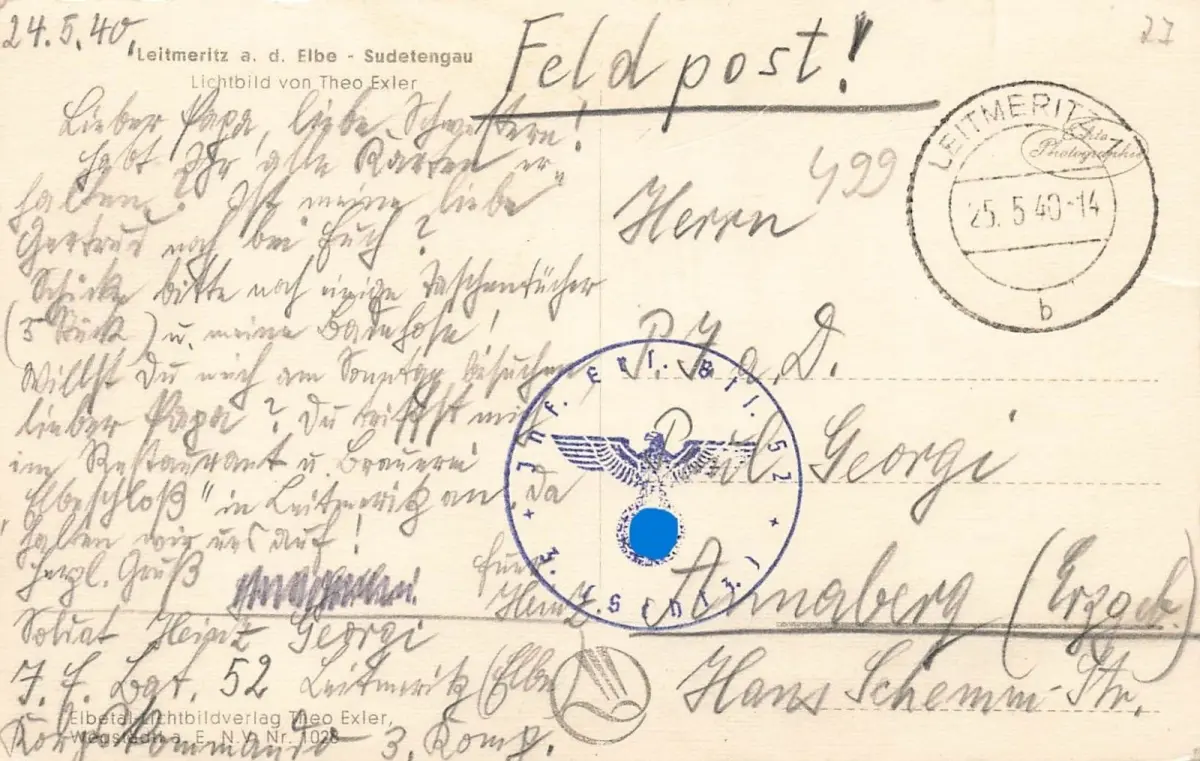 24.5.40.
Leitmeritz a. d. Elbe - Sudetengau
Lichtbild von Theo Exler
Feldpost!
27
Lieber Papa, liebe Schwestern!
habt Ihr alle Karten er„
halten? Ist meine liebe
Gertrud noch bei Euch?
Schicke bitte noch einige Taschentücher
(5 Stück) u. meine Badehose!
Willst Du mich am Sonntag besuchen
lieber Papa? Du triffst mich
im Restaurant u. Brauerei
Elbeschloß" in Leitmeritz an, da
halten wir uns auf!
herzl. Gruß
Euer
Heinz
Soldat Heinz Georgi
J. E. Bgt. 52 Leitmeritz (Elbe
Kommando 3. Komp.
Elbetal-Lichtbildverlag Theo Exler,
Wegstädtl a. E. N. V. Nr. 1028
499
Herrn
P. I. a. D.
Paul Georgi
Annaberg (Erzgeb.)
Hans Schemm-Str.
LEITMERITZ
25.5.40-14
b
Photographie
Inf. Ers. Btl. 52